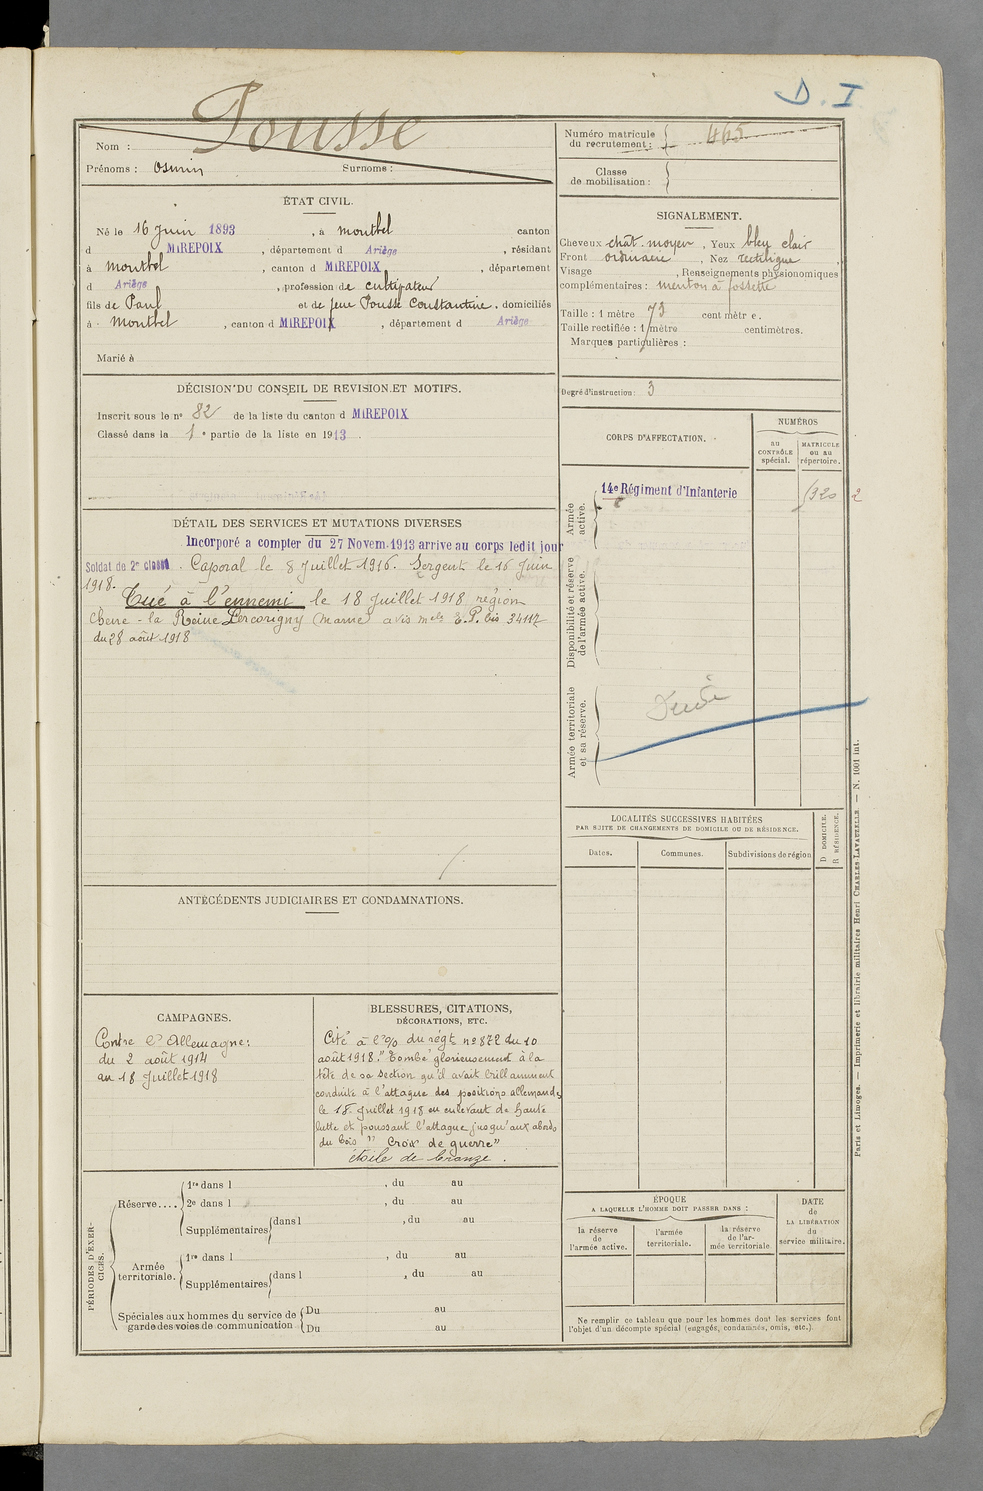 D. I
Pousse
Nom :
Prénoms : Osmin Surnome :
ÉTAT CIVIL.
Né le 16 Juin 1893, à Montbel canton
d MIREPOIX, département d Ariège, résidant
à Montbel, canton d MIREPOIX, département
d Ariège, profession de cultivateur
fils de Paul et de feue Pousse Constantine, domiciliés
à Montbel, canton d MIREPOIX, département d Ariège
Marié à
DÉCISION DU CONSEIL DE REVISION ET MOTIFS.
Inscrit sous le nº 82 de la liste du canton d MIREPOIX
Classé dans la 1e partie de la liste en 1913.
DÉTAIL DES SERVICES ET MUTATIONS DIVERSES
Incorporé a compter du 27 Novem. 1913 arrive au corps ledit jour
Soldat de 2e classe. Caporal le 8 Juillet 1916. Sergent le 16 Juin
1918.
Tué à l'ennemi le 18 Juillet 1918 région
la Reine (Marne) avis mel E.P. bis 34117
du 28 août 1918
ANTÉCÉDENTS JUDICIAIRES ET CONDAMNATIONS.
CAMPAGNES.
Contre l'Allemagne:
du 2 août 1914
au 18 Juillet 1918
BLESSURES, CITATIONS,
DÉCORATIONS, ETC.
Cité à l'o/o du régt nº 872 du 10
août 1918. "Tombé glorieusement à la
tête de sa section qu'il avait brillamment
conduite à l'attaque des positions allemandes
le 18 Juillet 1918 en enlevant de haute
lutte et poussant l'attaque jusqu'aux abords
du bois" "Croix de guerre"
étoile de bronze.
PÉRIODES D'EXERCICES.
Réserve....
1re dans l , du au
2e dans l , du au
Supplémentaires dans l , du au
Armée territoriale.
1re dans l , du au
Supplémentaires dans l , du au
Spéciales aux hommes du service de garde des voies de communication
Du au
Du au
Numéro matricule
du recrutement : 465
Classe
de mobilisation :
SIGNALEMENT.
Cheveux chât. moyen, Yeux bleu clair
Front ordinaire, Nez rectiligne,
Visage , Renseignements physionomiques
complémentaires : menton à fossette
Taille : 1 mètre 73 centimètre.
Taille rectifiée : 1 mètre centimètres.
Marques particulières :
Degré d'instruction : 3
CORPS D'AFFECTATION.
NUMÉROS
au CONTRÔLE spécial.
MATRICULE ou au répertoire.
Armée active.
14e Régiment d'Infanterie
Disponibilité et réserve de l'armée active.
Armée territoriale et sa réserve.
LOCALITÉS SUCCESSIVES HABITÉES
PAR SUITE DE CHANGEMENTS DE DOMICILE OU DE RÉSIDENCE.
Dates. Communes. Subdivisions de région
D DOMICILE.
R RÉSIDENCE.
ÉPOQUE
A LAQUELLE L'HOMME DOIT PASSER DANS :
la réserve de l'armée active.
l'armée territoriale.
la réserve de l'armée territoriale
DATE
de
LA LIBÉRATION
du
service militaire.
Ne remplir ce tableau que pour les hommes dont les services font
l'objet d'un décompte spécial (engagés, condamnés, omis, etc.).
Paris et Limoges. — Imprimerie et librairie militaires Henri CHARLES-LAVAUZELLE. — N. 1001 int.